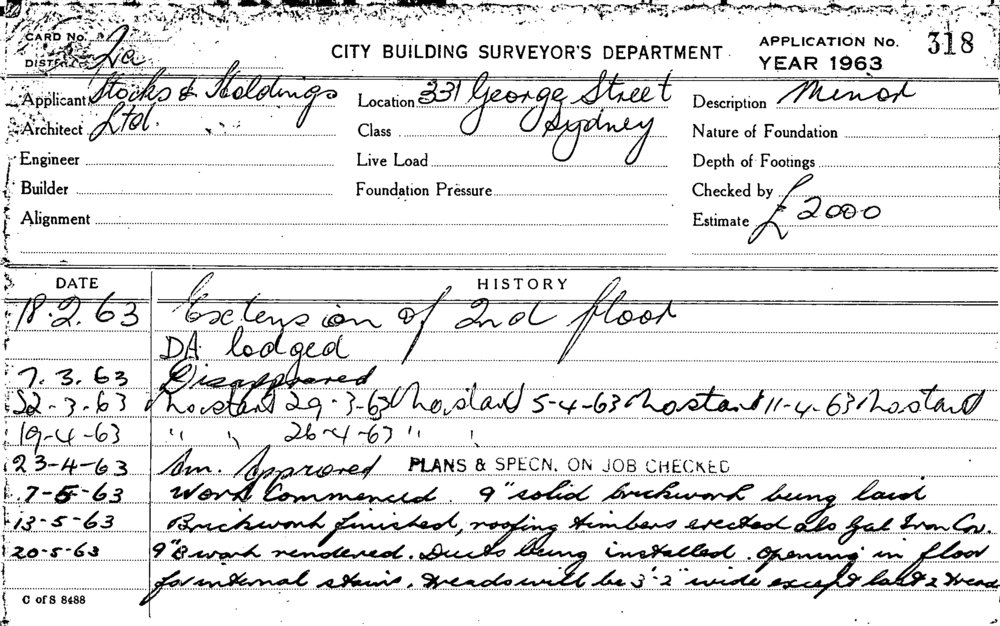 CARD No.
DISTRICT 2a
CITY BUILDING SURVEYOR'S DEPARTMENT
APPLICATION No. 318
YEAR 1963
Applicant Stocks & Holdings Ltd.
Location 331 George Street Sydney
Description Minor
Architect
Class
Nature of Foundation
Engineer
Live Load
Depth of Footings
Builder
Foundation Pressure
Checked by
Alignment
Estimate £2000
DATE HISTORY
18.2.63 Extension of 2nd floor
DA lodged
7.3.63 Disapproved
22-3-63 No start 29-3-63 No start 5-4-63 No start 11-4-63 No start
19-4-63 " " 26-4-63 " "
23-4-63 Am. Approved PLANS & SPECN. ON JOB CHECKED
7-5-63 Work Commenced. 9" solid brickwork being laid
13-5-63 Brickwork finished, roofing timbers erected also Gal Iron Cov.
20-5-63 9" B work rendered. Ducts being installed. opening in floor
for internal stairs. treads will be 3'-2" wide except last 2 treads
C of S 8488